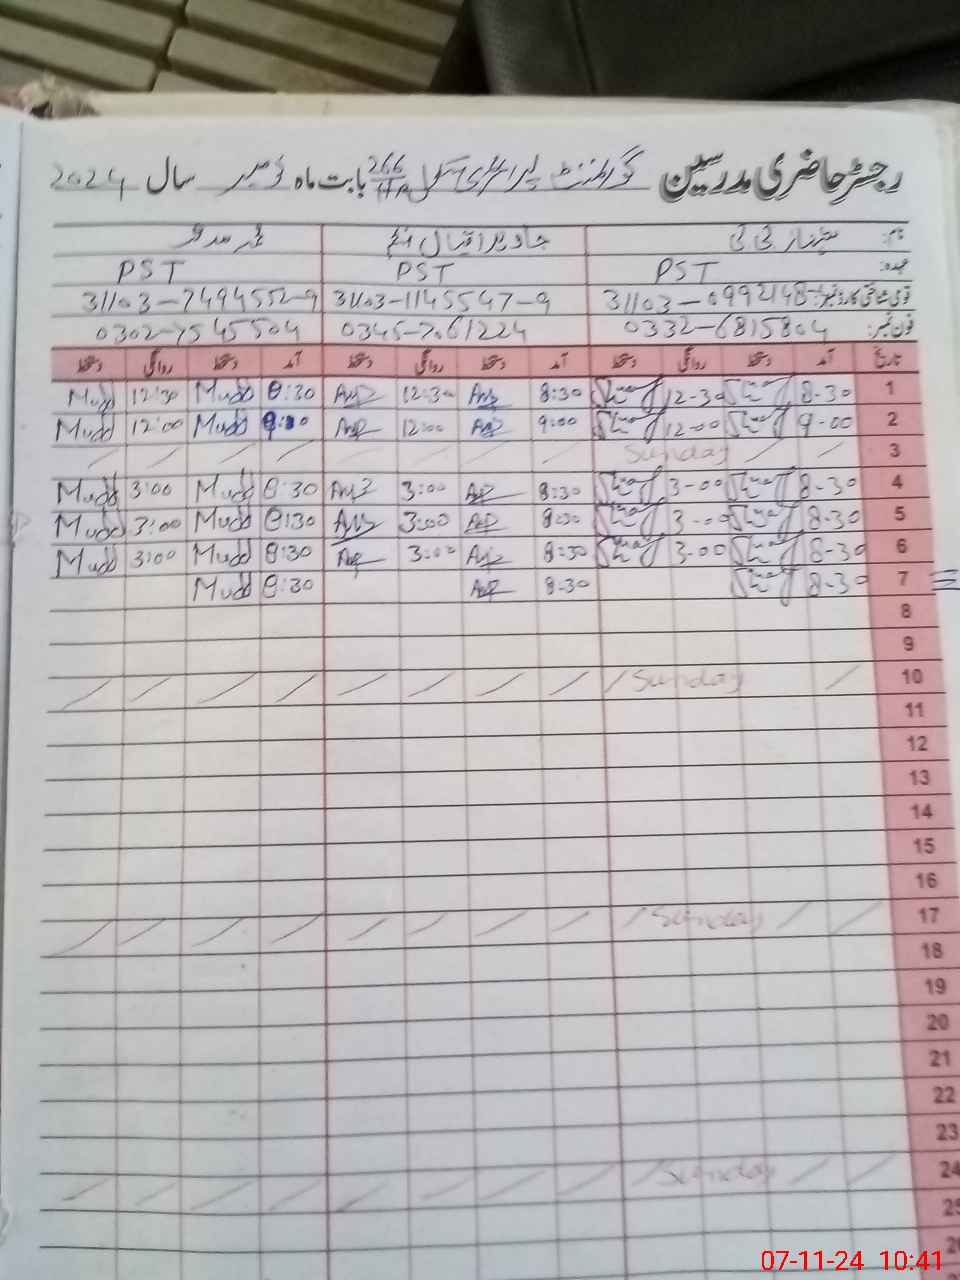 رجسٹر حاضری مدرسین گورنمنٹ پرائمری سکول 266 بابت ماہ نومبر سال 2024
نام: شہناز بی بی جاوید اقبال
عہدہ: PST PST PST
قومی شناختی کارڈ نمبر: 31103-0992148 31103-1145547-9 31103-7494552-9
فون نمبر: 0332-6815804 0345-7061224 0302-7545504
تاریخ آمد دستخط روانگی دستخط آمد دستخط روانگی دستخط آمد دستخط روانگی دستخط
1 8-30 12-30 8:30 12:30 8:30 Mudd 12:30 Mudd
2 9-00 12-00 9:00 12:00 Mudd 12:00 Mudd
3 Sunday
4 8-30 3-00 8:30 3:00 8:30 Mudd 3:00 Mudd
5 8-30 3-00 8:30 3:00 8:30 Mudd 3:00 Mudd
6 8-30 3-00 8:30 3:00 8:30 Mudd 3:00 Mudd
7 8-30 8-30 8:30 Mudd
8
9
10 Sunday
11
12
13
14
15
16
17 Sunday
18
19
20
21
22
23
24 Sunday
25
07-11-24 10:41